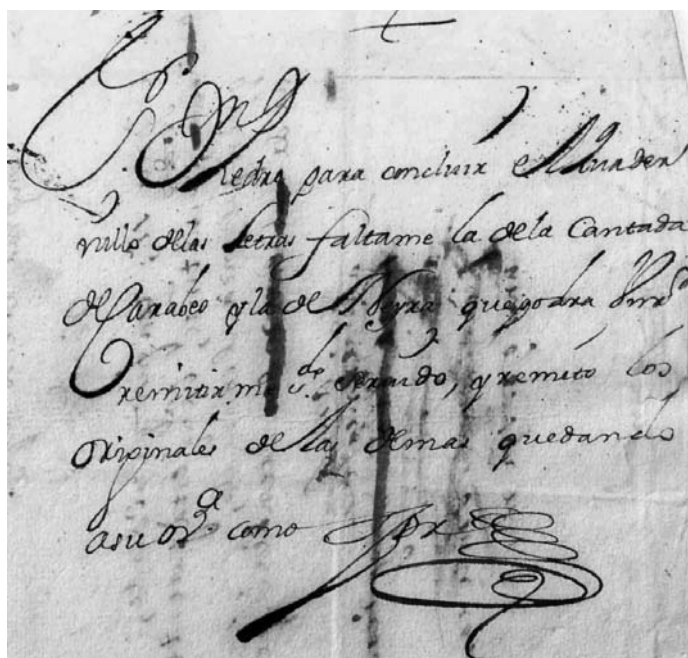 Piedra para concluir el quader
nillo delas Letras faltame la dela Cantada
de Carabeo y la de Neyra que podra
remitirme sdo servido, y remito los
originales de las demas quedando
a su orn como